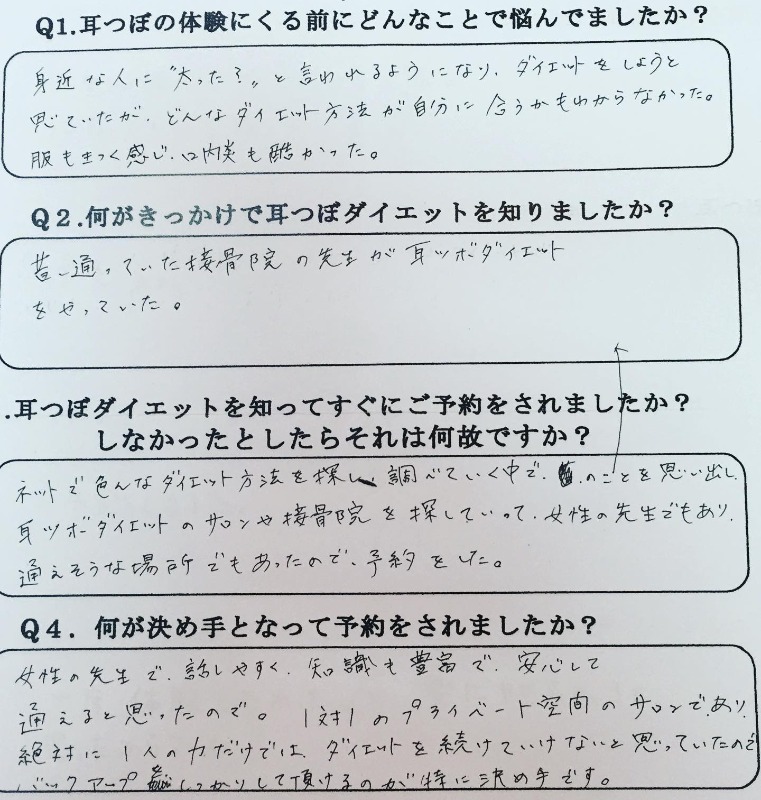 Q1.耳つぼの体験にくる前にどんなことで悩んでましたか？
身近な人に“太った？„と言われるようになり、ダイエットをしようと
思っていたが、どんなダイエット方法が自分に合うかもわからなかった。
服もきつく感じ、口内炎も酷かった。
Q2.何がきっかけで耳つぼダイエットを知りましたか？
昔、通っていた接骨院の先生が耳ツボダイエット
をやっていた。
.耳つぼダイエットを知ってすぐにご予約をされましたか？
しなかったとしたらそれは何故ですか？
ネットで色んなダイエット方法を探し、調べていく中で、のことを思い出し、
耳ツボダイエットのサロンや接骨院を探していって、女性の先生でもあり、
通えそうな場所でもあったので、予約をした。
Q4．何が決め手となって予約をされましたか？
女性の先生で、話しやすく、知識も豊富で、安心して
通えると思ったので。1対1のプライベート空間のサロンであり、
絶対に1人の力だけでは、ダイエットを続けていけないと思っていたので
バックアップしっかりして頂けるのが特に決め手です。